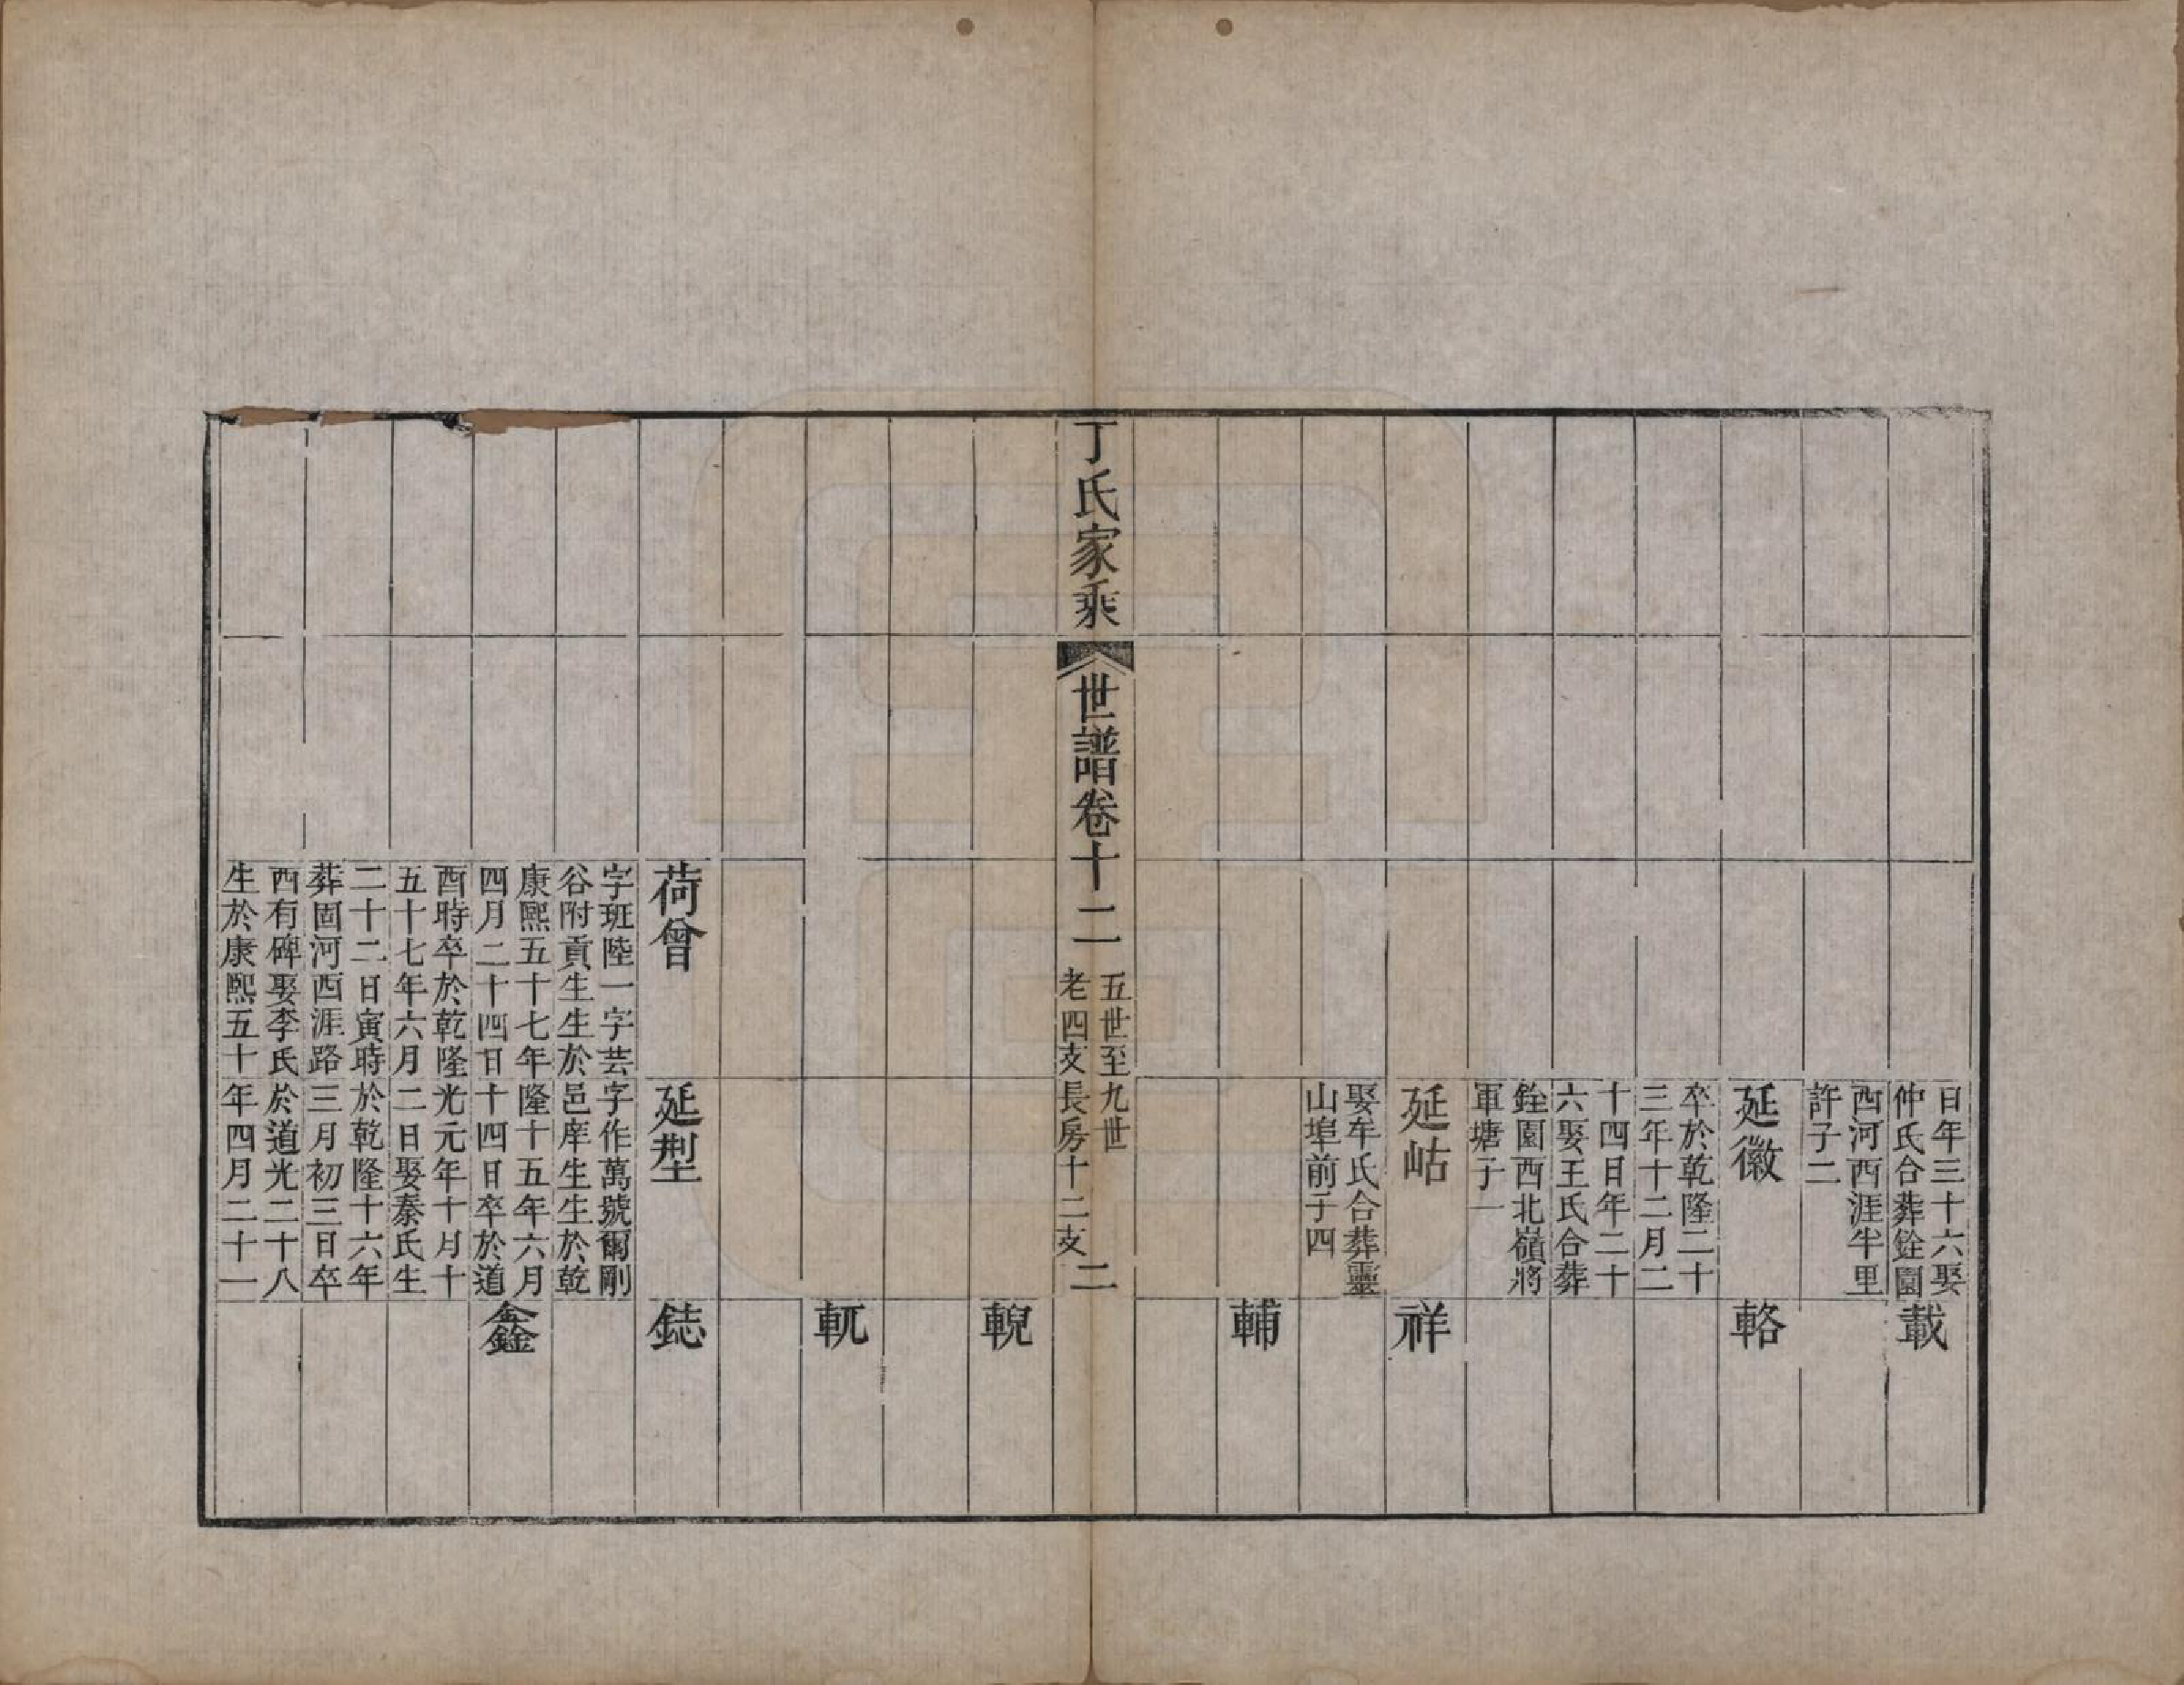 日年三十六娶
仲氏合葬銓園
西河西涯半里
許子二
載
延徽
卒於乾隆二十
三年十二月二
十四日年二十
六娶王氏合葬
銓園西北嶺將
軍塘子一
輅
延岵
娶牟氏合葬靈
山埠前子四
祥
輔
丁氏家乘
世譜卷十二
五世至九世
老四支長房十二支
二
輗
軏
荷曾
字班陸一字芸
谷附貢生生於
康熙五十七年
四月二十四日
酉時卒於乾隆
五十七年六月
二十二日寅時
葬固河西涯路
西有碑娶李氏
生於康熙五十
延型
字作萬號爾剛
邑庠生生於乾
隆十五年六月
十四日卒於道
光元年十月十
二日娶秦氏生
於乾隆十六年
三月初三日卒
於道光二十八
年四月二十一
鋕
鑫